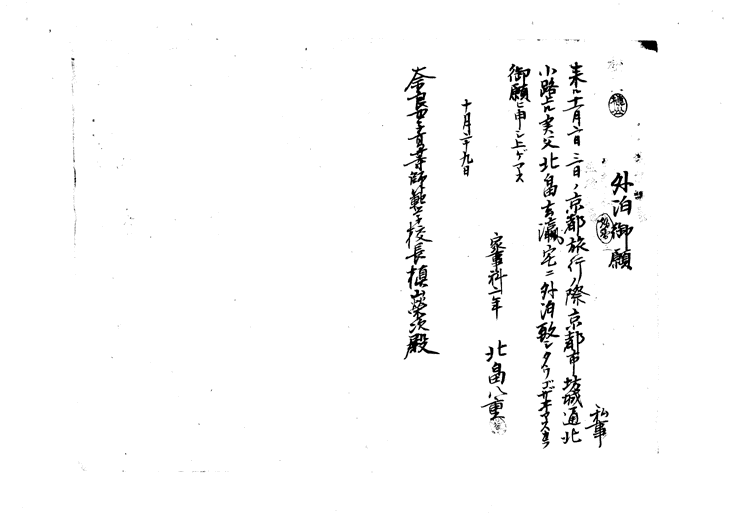 外泊御願
私事
来ル十一月二日三日ノ京都旅行ノ際京都市坊城通北
小路上ル実父北畠玄瀛宅ニ外泊致シタウゴザイマス
御願ヒ申シ上ゲマス
十月二十九日
家事科一年 北畠八重
奈良女子高等師範学校長槙山榮次殿